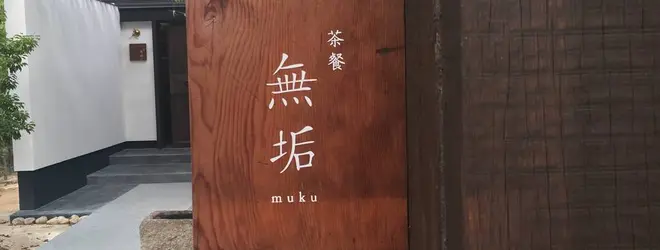 茶餐
無垢
muku